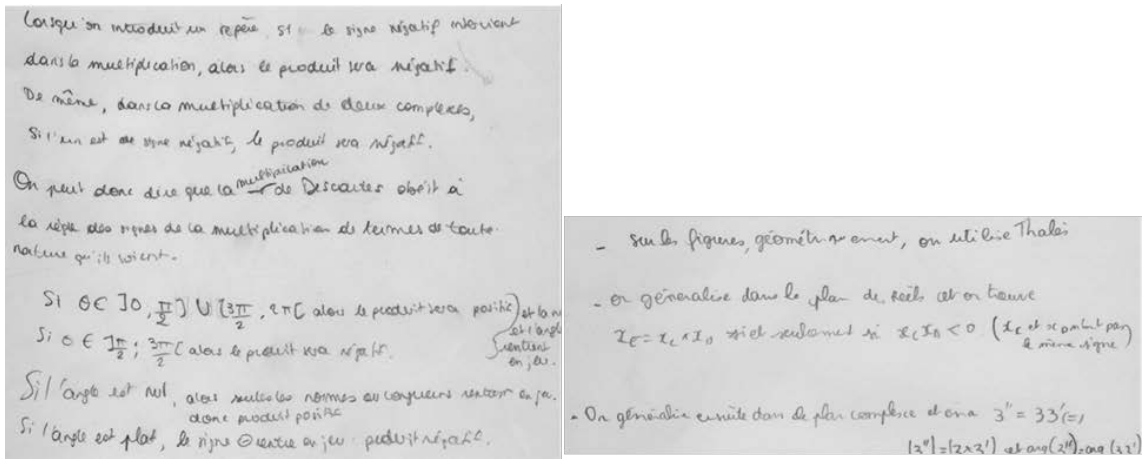 Lorsqu'on introduit un repère, si le signe négatif intervient
dans la multiplication, alors le produit sera négatif.
De même, dans la multiplication de deux complexes,
Si l'un est de signe négatif, le produit sera négatif.
On peut donc dire que la multiplication de Descartes obéit à
la règle des signes de la multiplication de termes de toute
nature qu'ils soient.
Si θ ∈ ]0, π/2] ∪ [3π/2, 2π[ alors le produit sera positif
Si θ ∈ ]π/2 ; 3π/2[ alors le produit sera négatif.
et la
et l'angle
rentrent
en jeu.
Si l'angle est nul, alors seules les normes ou longueurs rentrent en jeu.
donc produit positif
Si l'angle est plat, le signe ⊖ entre en jeu : produit négatif.
- sur les figures, géométriquement, on utilise Thalès
- on généralise dans le plan de réels et on trouve
x_E = x_C × x_D si et seulement si x_C x_D < 0 (x_C et x_D n'ont pas
le même signe)
- On généralise ensuite dans le plan complexe et on a z'' = zz' (=)
|z''| = |z × z'| et arg(z'') = arg(zz')